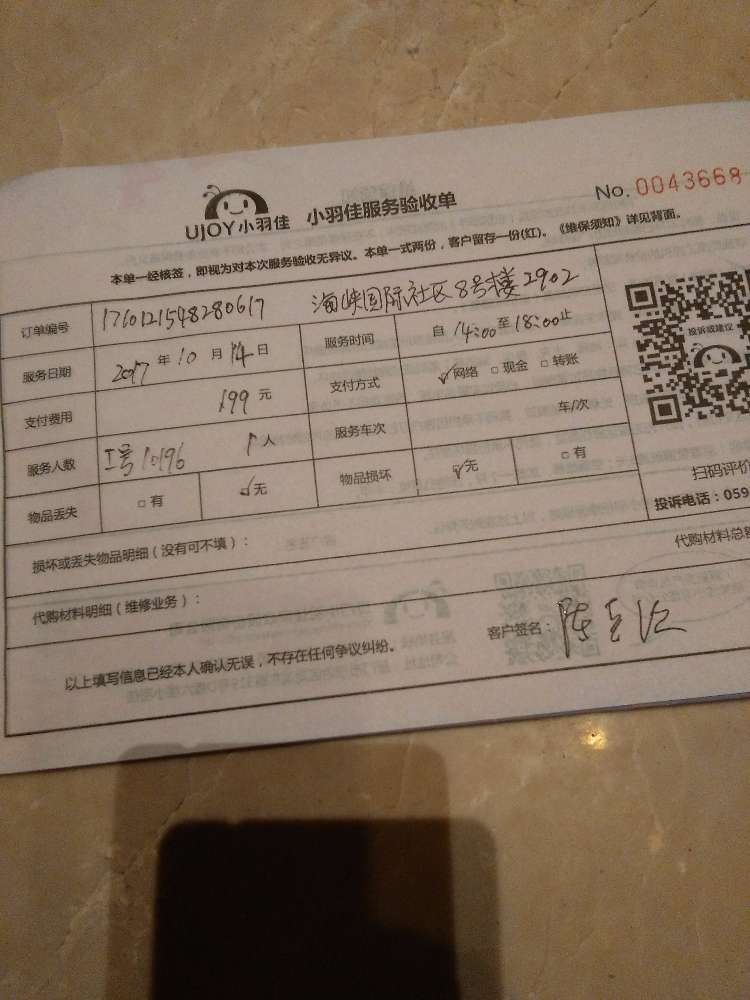 UJOY小羽佳 小羽佳服务验收单 No. 0043668
本单一经核签，即视为对本次服务验收无异议。本单一式两份，客户留存一份(红)。《维保须知》详见背面。
订单编号 1760121548280617 海峡国际社区8号楼2902
服务日期 2017 年 10 月 14 日 服务时间 自 14:00 至 18:00 止
支付费用 199 元 支付方式 ☑网络 □现金 □转账
服务人数 工号10196 1人 服务车次 车/次
物品丢失 □有 ☑无 物品损坏 ☑无 □有
投诉或建议
扫码评价
投诉电话：059
损坏或丢失物品明细（没有可不填）：
代购材料明细（维修业务）： 代购材料总额
以上填写信息已经本人确认无误，不存在任何争议纠纷。 客户签名：